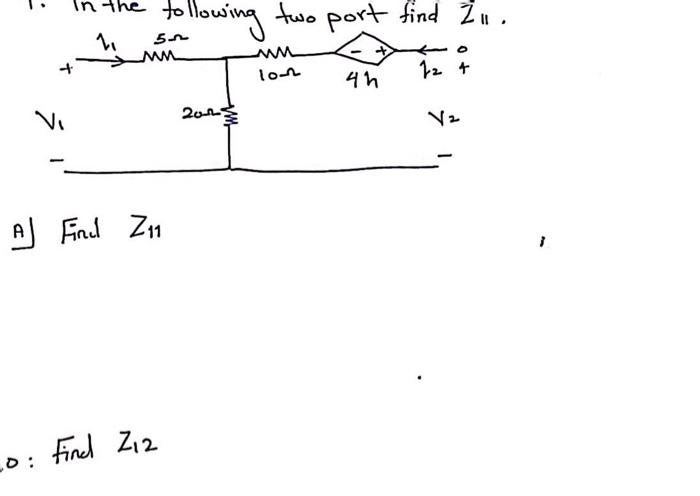 1. In the following two port find Z11.
I1 5Ω
10Ω
- +
4I1
I2
+
+
20Ω
V1
V2
-
-
A] Find Z11
.0: Find Z12